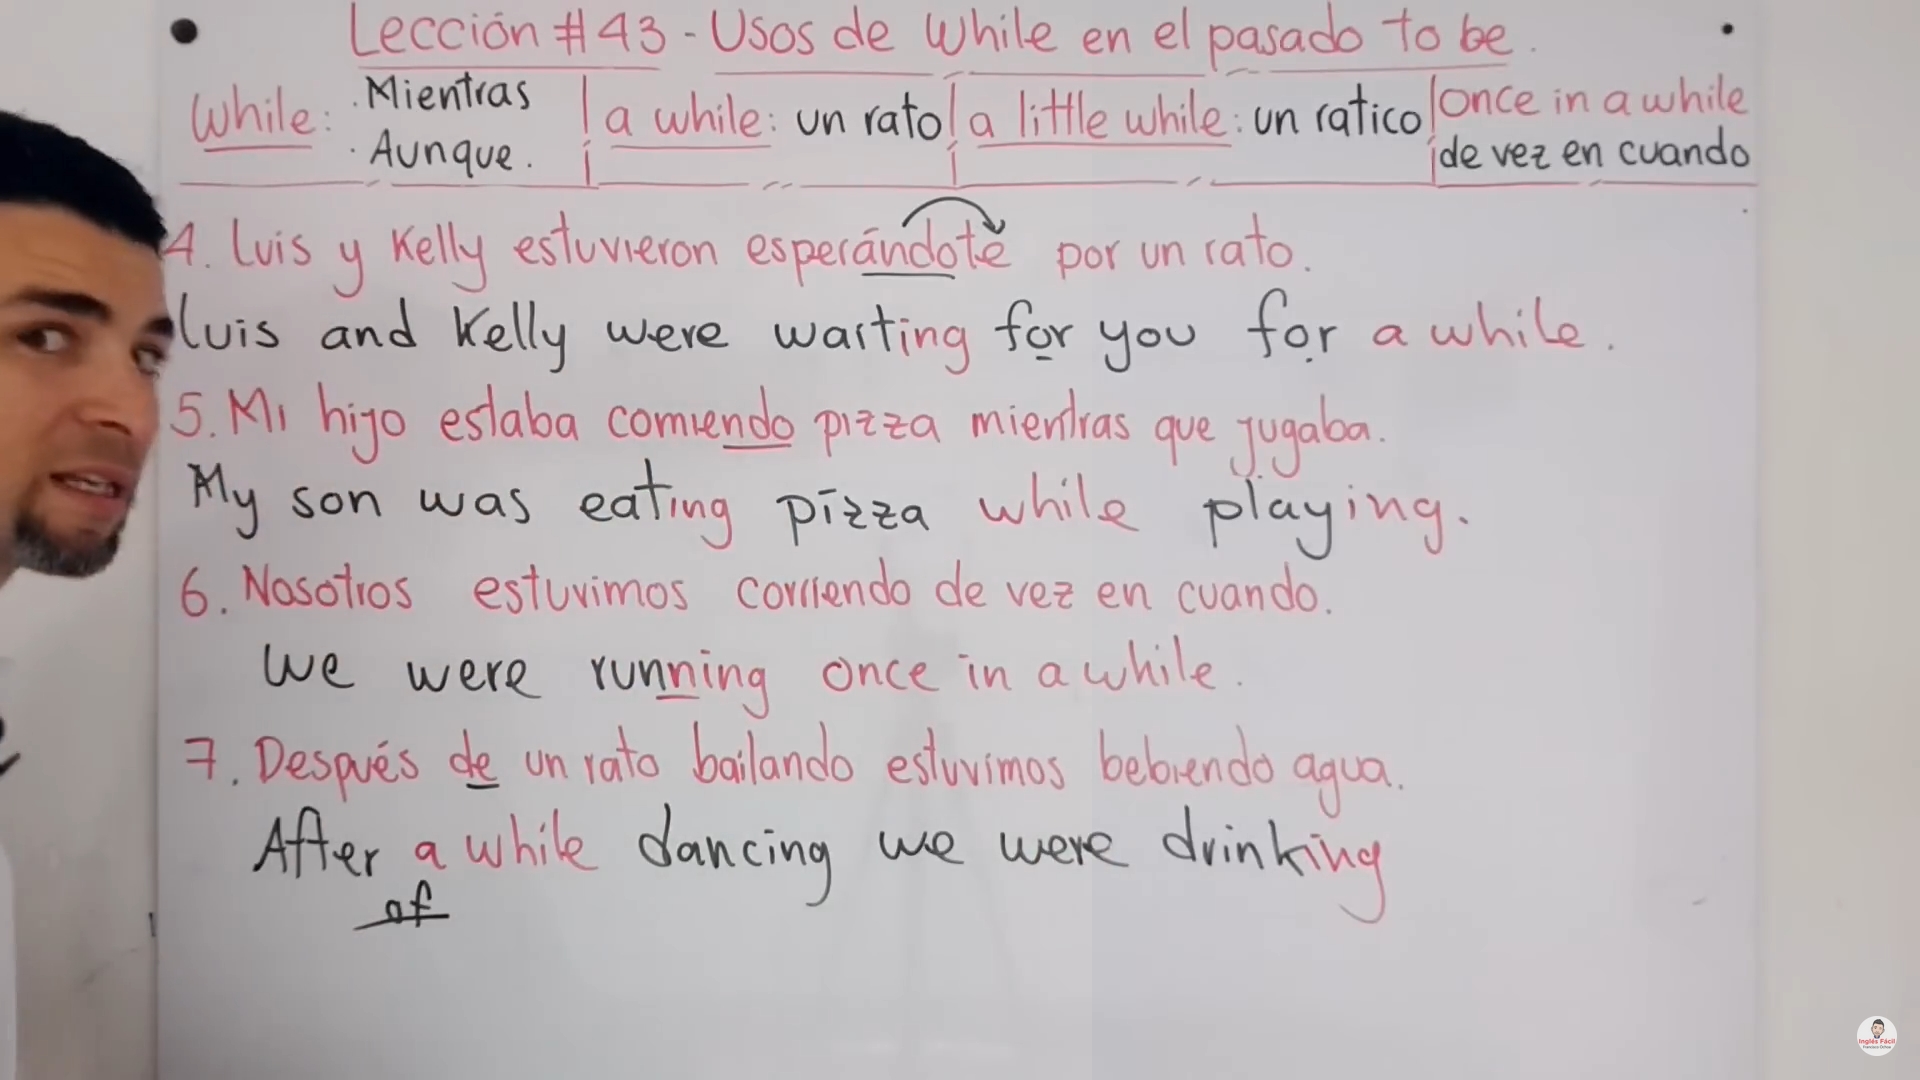 Lección #43 - Usos de while en el pasado to be.
While: · Mientras
· Aunque.
a while: un rato
a little while: un ratico
once in a while
de vez en cuando
4. Luis y Kelly estuvieron esperándote por un rato.
Luis and Kelly were waiting for you for a while.
5. Mi hijo estaba comiendo pizza mientras que jugaba.
My son was eating pizza while playing.
6. Nosotros estuvimos corriendo de vez en cuando.
We were running once in a while.
7. Después de un rato bailando estuvimos bebiendo agua.
After a while dancing we were drinking
of
Inglés Fácil